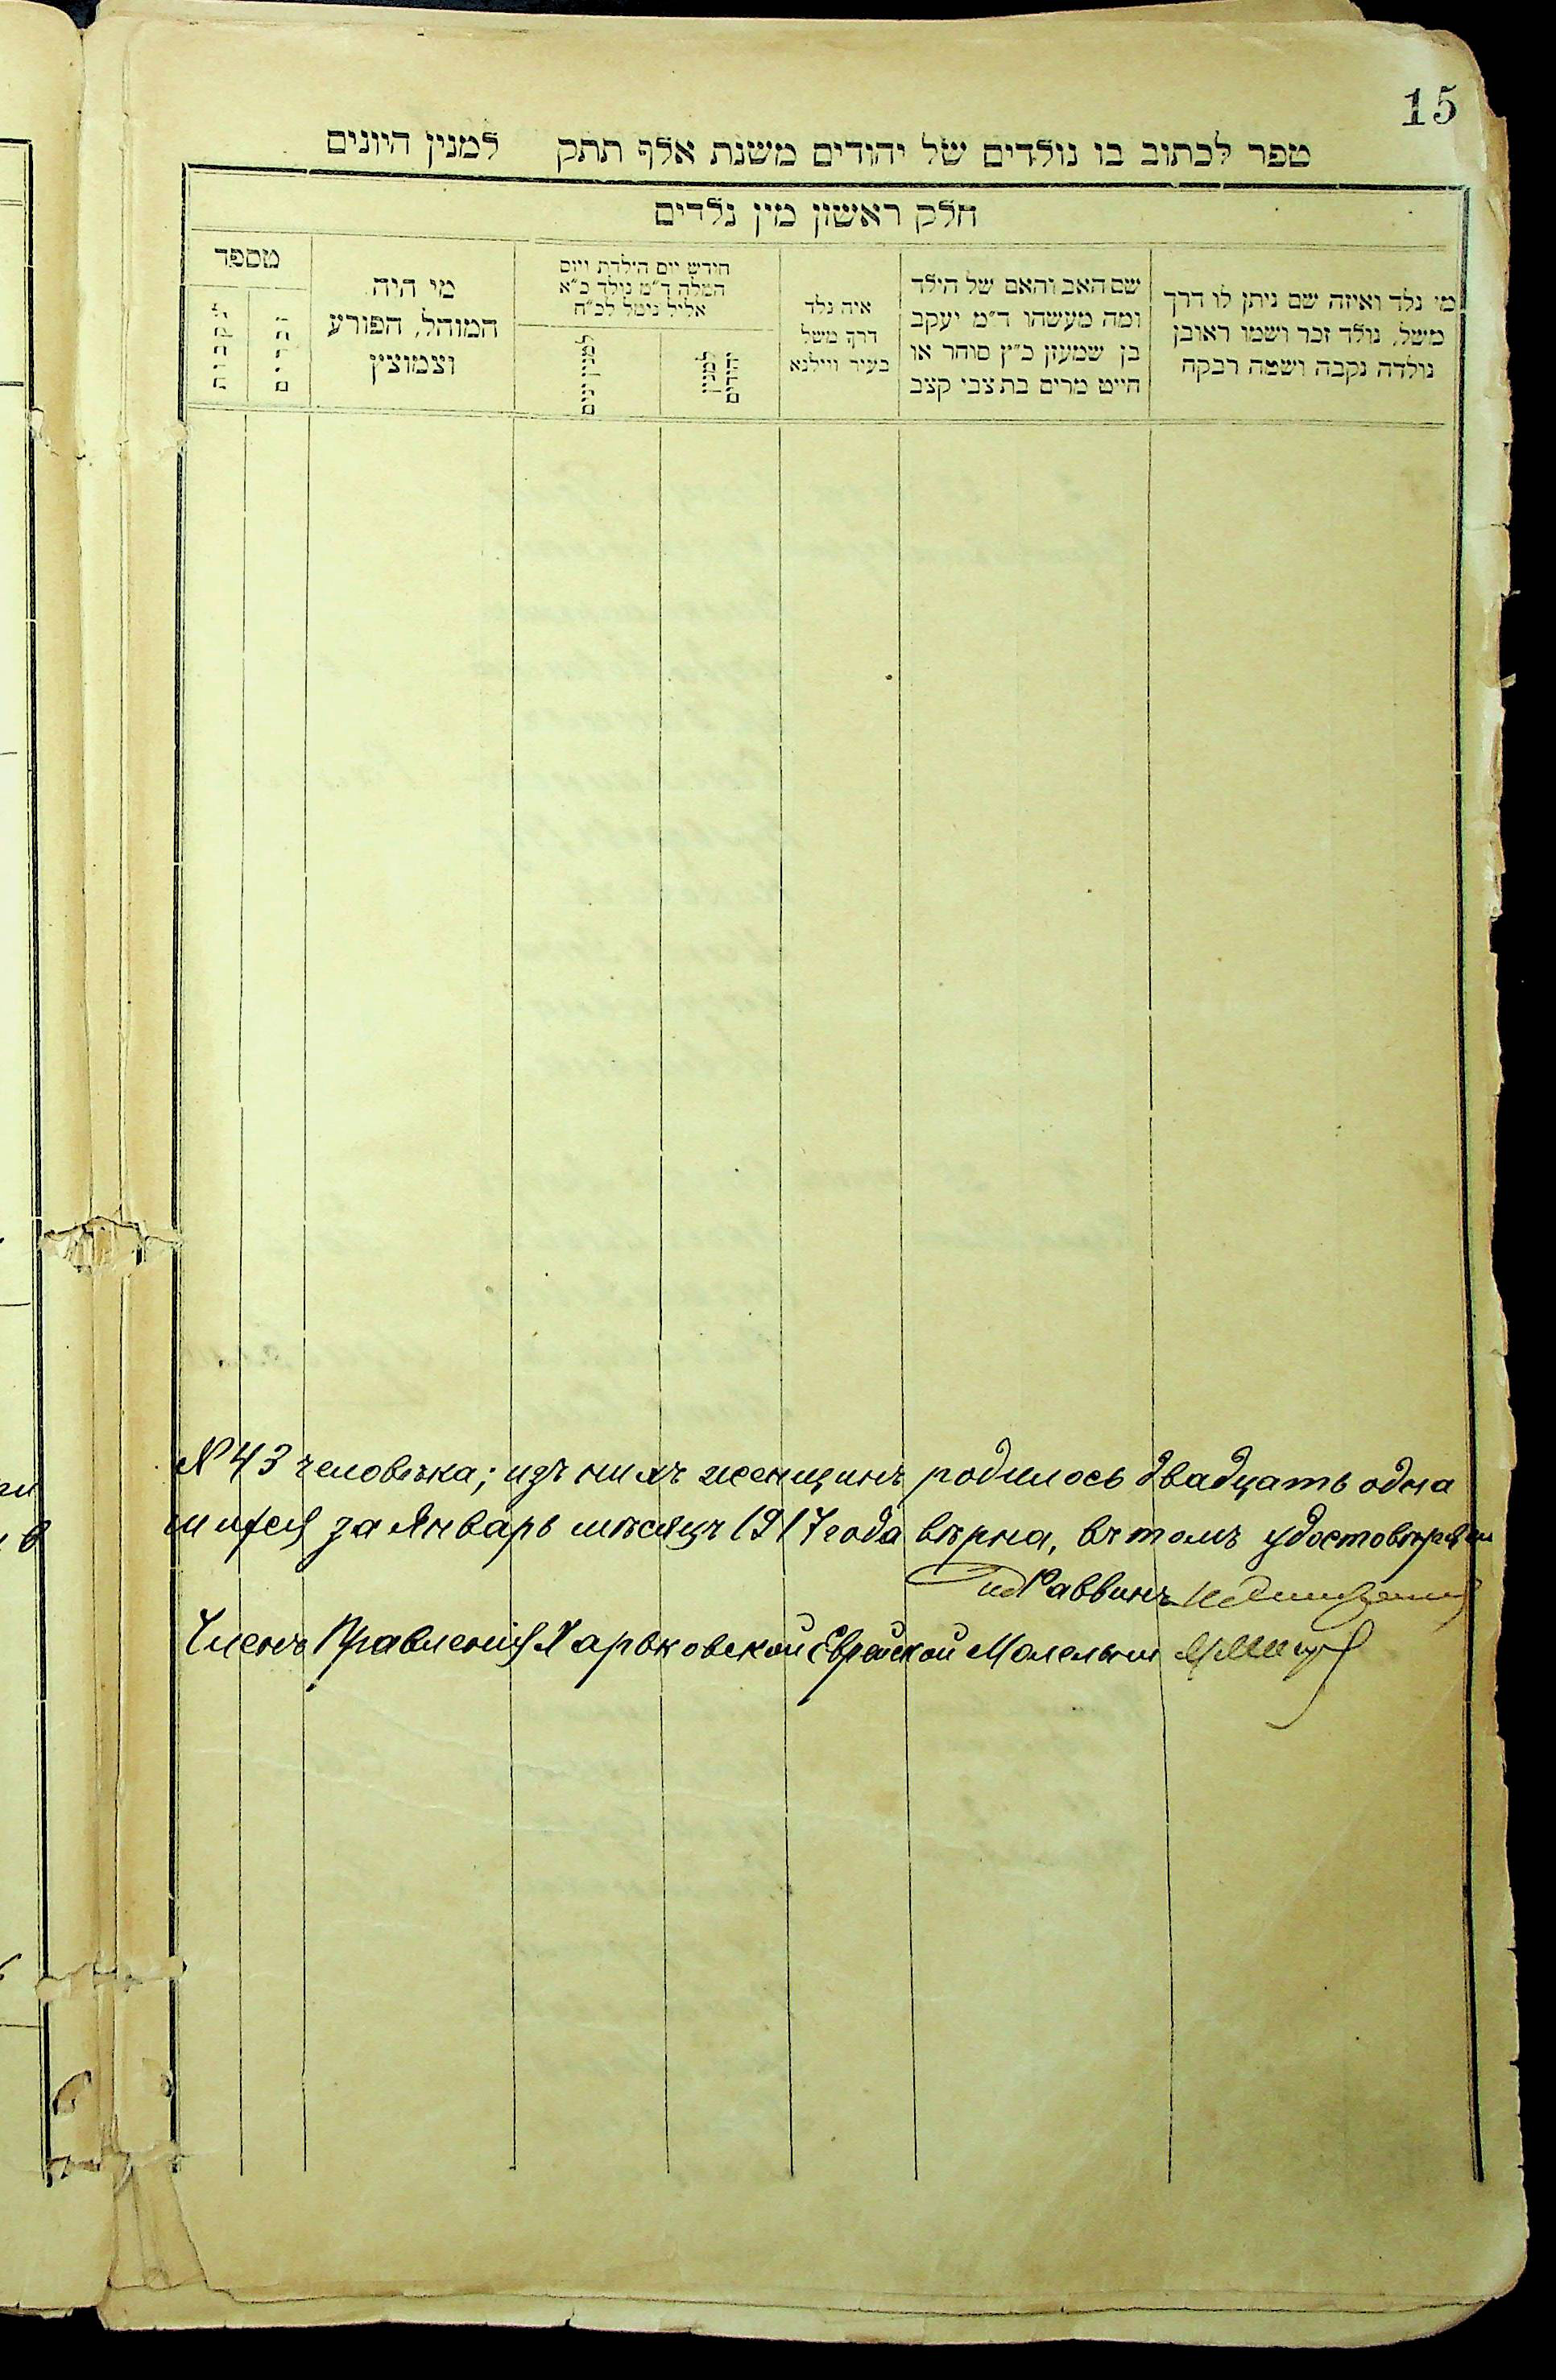 15
ספר לכתוב בו נולדים של יהודים משנת אלף תתק למנין היונים
חלק ראשון מין נלדים
מי נלד ואיזה שם ניתן לו דרך
משל, נולד זכר ושמו ראובן
נולדה נקבה ושמה רבקה
שם האב והאם של הילד
ומה מעשהו ד״מ יעקב
בן שמעון כ״ץ סוחר או
חייט מרים בת צבי קצב
איה נלד
דרך משל
בעיר ווילנא
חידש יום הילדת ויום
המלה ד״מ נילד כ״א
אליל נימל לכ״ח
למנין
יהודים
למנין יונים
מי היה
המוהל, הפורע
וצמוצץ
מספר
זכרים
נקבות
№ 43 человѣка; изъ нихъ женщинъ родилось двадцать одна
шихся за Январь мѣсяцъ 1917 года вѣрна, въ томъ удостовѣряемъ
Раввинъ
Членъ Правленія Харьковской Еврейской Молельни